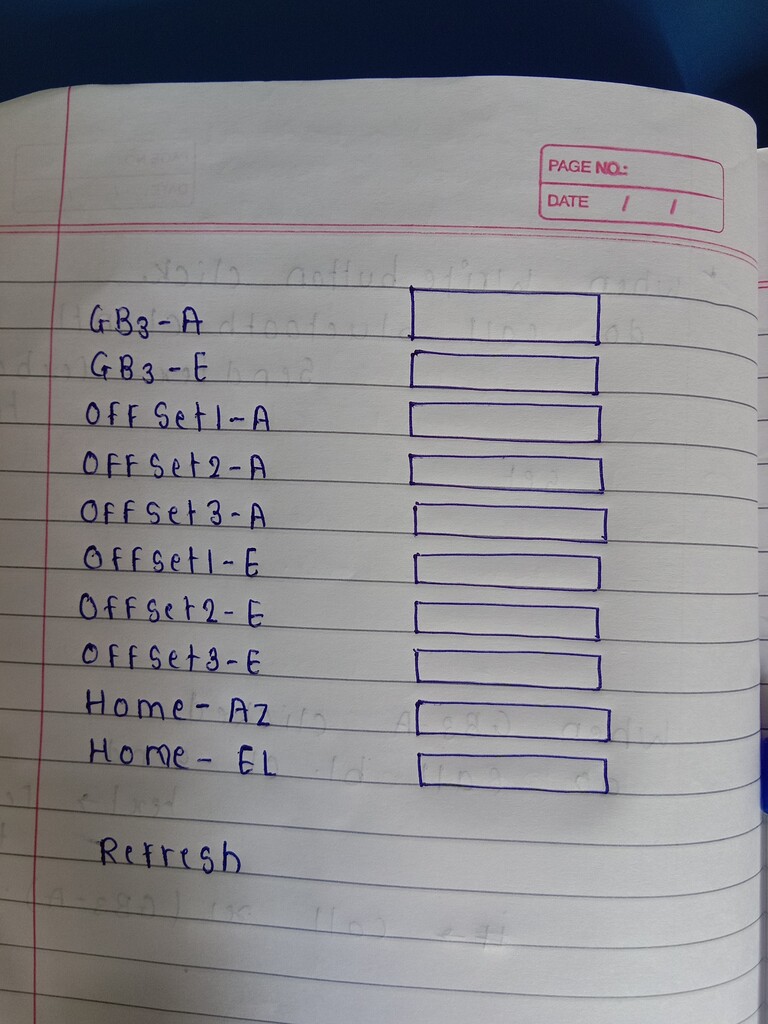 PAGE NO.:
DATE / /
GB3-A
GB3-E
OFFSet1-A
OFFSet2-A
OFFSet3-A
OFFSet1-E
OFFSet2-E
OFFSet3-E
Home-AZ
Home-EL
Refresh